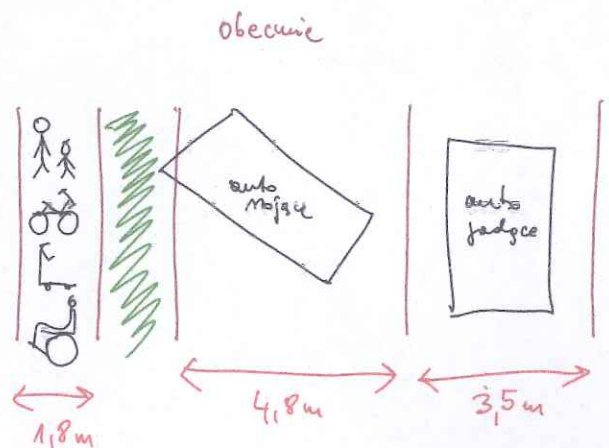 obecnie
auto
stojące
auto
jadące
1,8m
4,8m
3,5m